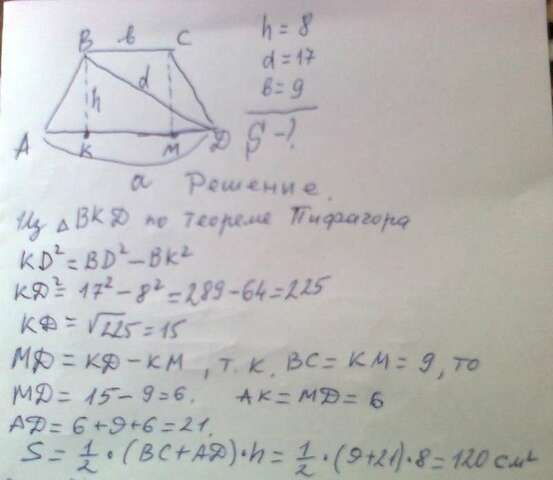 B в C
h = 8
d = 17
в = 9
S - ?
d
h
A K M D
a Решение.
Из △ BKD по теореме Пифагора
KD² = BD² - BK²
KD² = 17² - 8² = 289 - 64 = 225
KD = √225 = 15
MD = KD - KM, т.к. BC = KM = 9, то
MD = 15 - 9 = 6. AK = MD = 6
AD = 6 + 9 + 6 = 21.
S = 1/2 · (BC + AD) · h = 1/2 · (9 + 21) · 8 = 120 см²